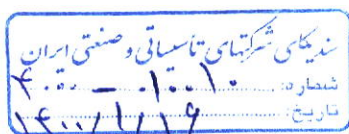 سندیکای شرکتهای تاسیساتی و صنعتی ایران
شماره:
تاریخ: ۱۴۰۰/۱/۱۶